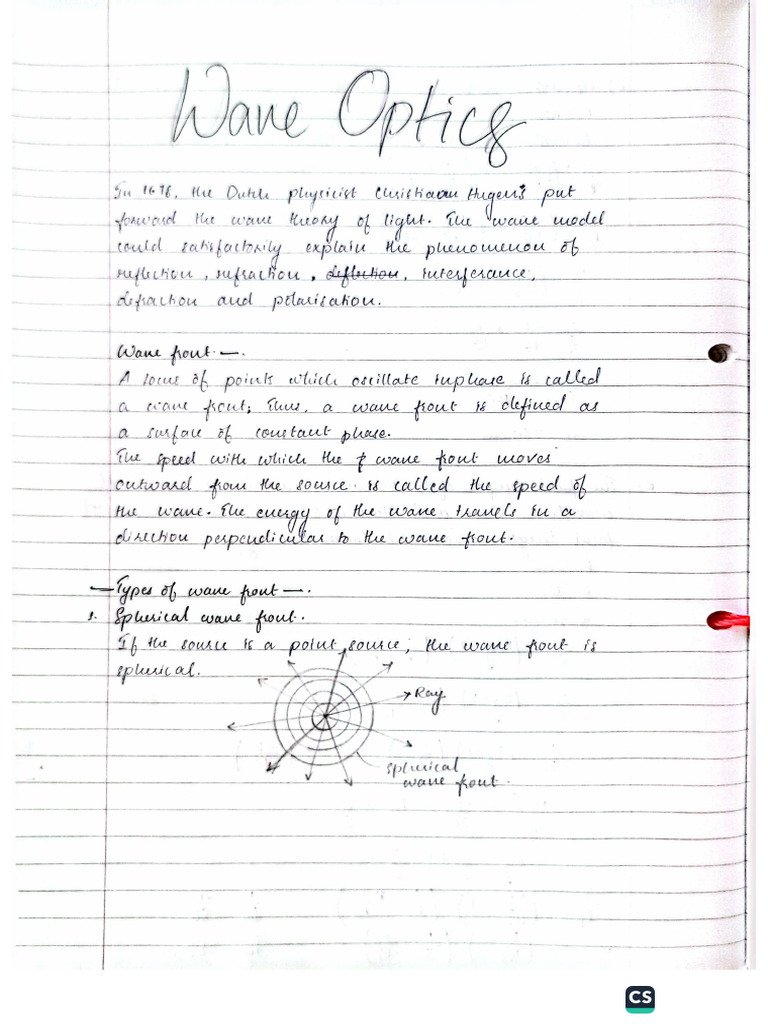 Wave Optics
In 1678, the Dutch physicist Christiaan Hugens put
forward the wave theory of light. The wave model
could satisfactorily explain the phenomenon of
reflection, refraction, deflection, interferance,
defraction and polarisation.
Wave front —.
A locus of points which oscillate inphase is called
a wave front; Thus, a wave front is defined as
a surface of constant phase.
The speed with which the wave front moves
outward from the source is called the speed of
the wave. The energy of the wave travels in a
direction perpendicular to the wave front.
— Types of wave front —.
1. Spherical wave front.
If the source is a point source, the wave front is
spherical.
Ray
spherical
wave front.
CS